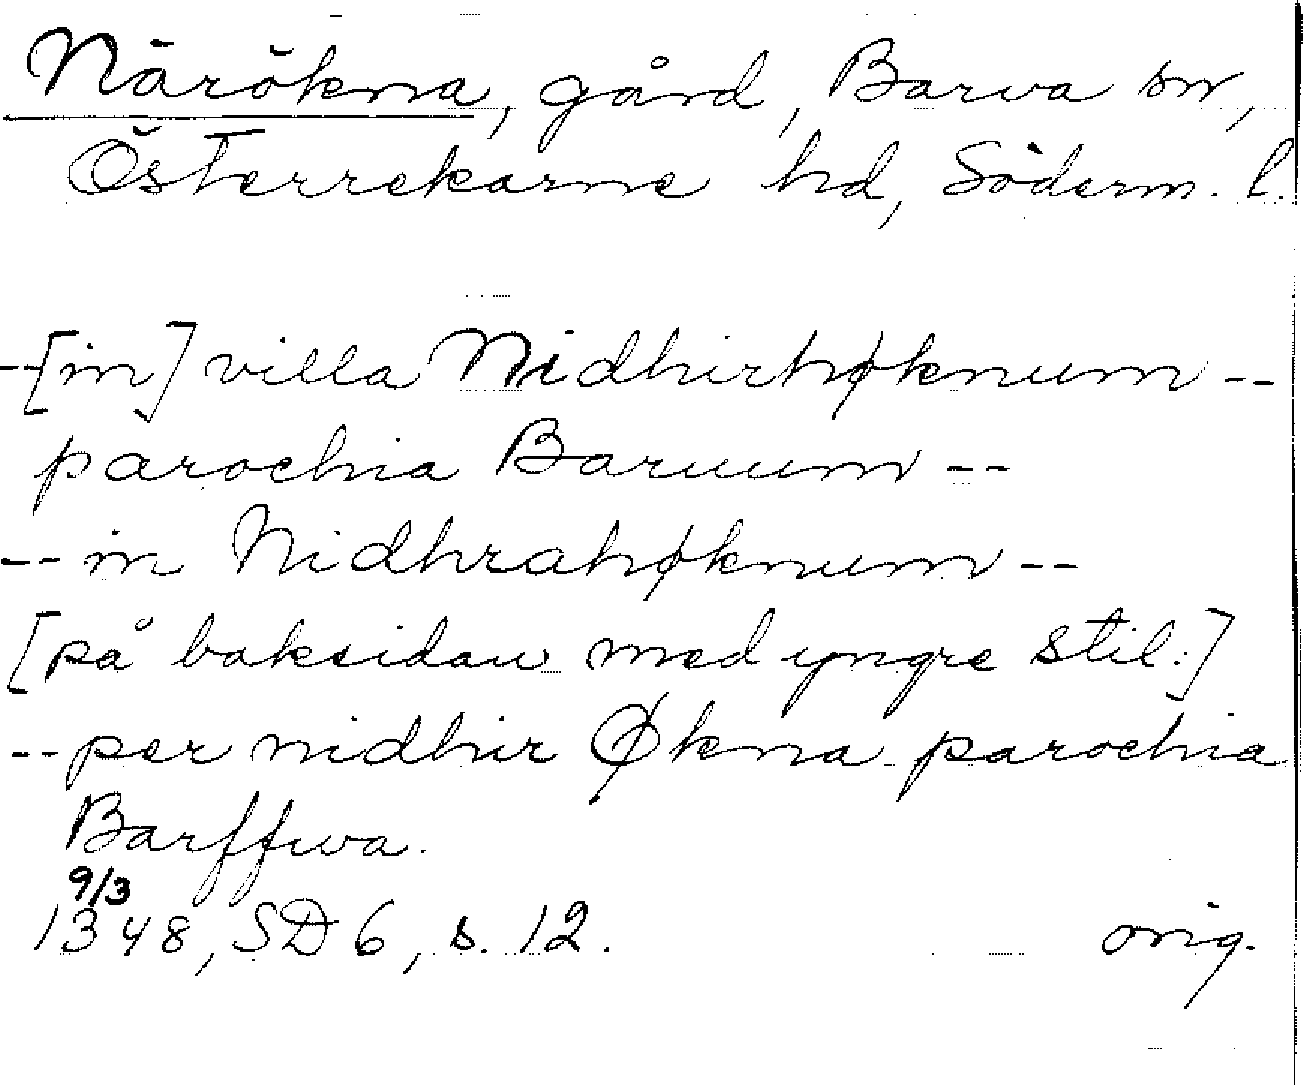 Närökna, gård, Barva sn,
Österrekarne hd, Söderm. l.
--[in] villa Nidhirhøknum--
parochia Baruum--
--in Nidhrahøknum--
[på baksidan med yngre stil:]
--per nidhir Økna parochia
Barffwa.
9/3
1348, SD 6, s. 12. orig.